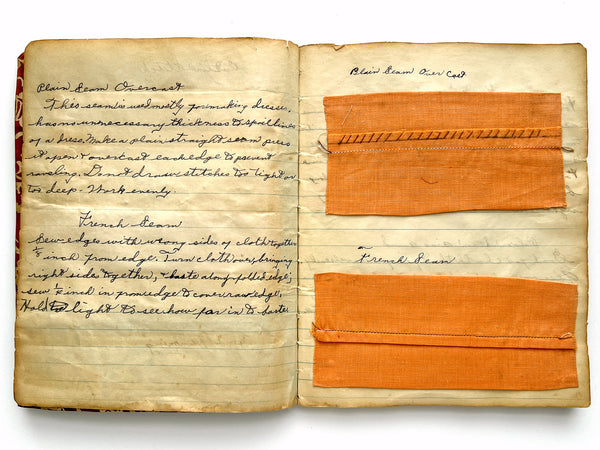 Plain Seam Overcast
This seam is used mostly for making dresses.
has no unnecessary thickness to spoil lines
of a dress. Make a plain straight seam press
it open & overcast each edge to prevent
raveling. Do not draw stitches too tight or
too deep - Work evenly.
French Seam
Sew edges with wrong sides of cloth together
inch from edge. Turn cloth over, bringing
right sides together, & baste along folded edge;
sew inch in from edge to cover raw edge.
Hold to light to see how far in to baste
Plain Seam Over Cast
French Seam